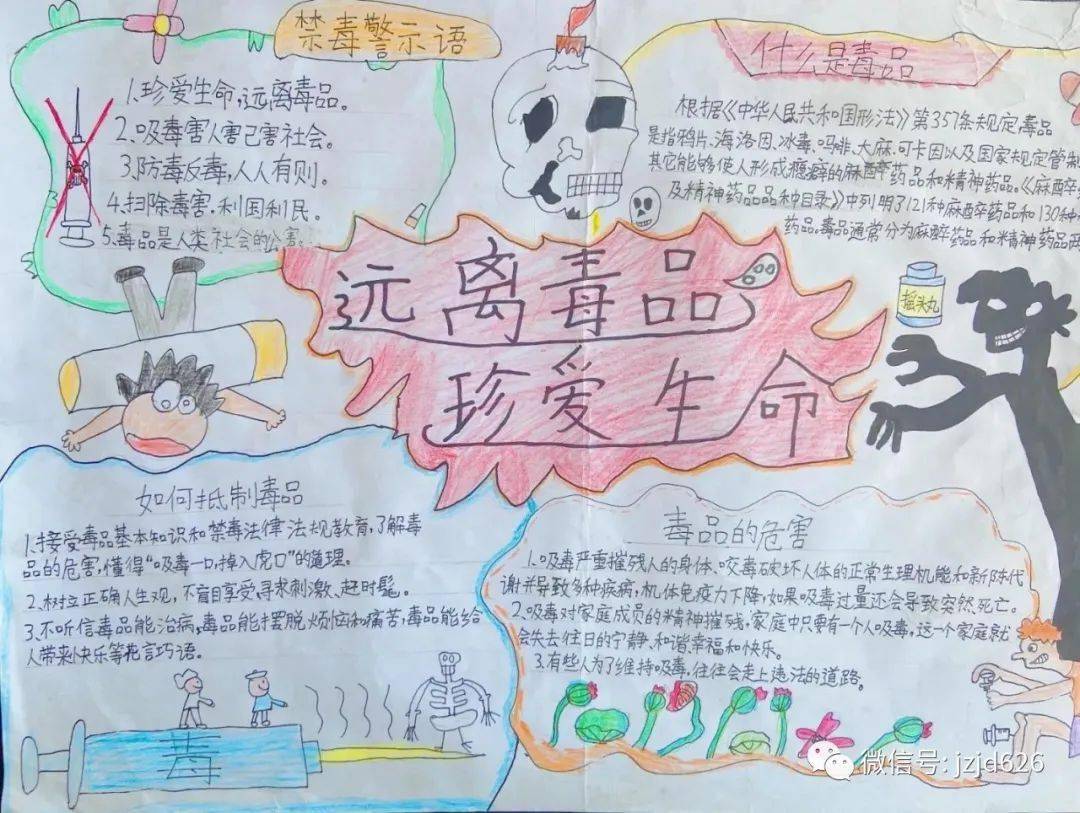 禁毒警示语
1.珍爱生命,远离毒品。
2.吸毒害人害己害社会。
3.防毒反毒,人人有则。
4.扫除毒害.利国利民。
5.毒品是人类社会的公害。
什么是毒品
根据《中华人民共和国形法》第357条规定毒品
是指鸦片、海洛因、冰毒、吗啡、大麻、可卡因以及国家规定管制
其它能够使人形成瘾癖的麻醉药品和精神药品。《麻醉
及精神药品品种目录》中列明了121种麻醉药品和130种
药品。毒品通常分为麻醉药品和精神药品两
远离毒品
珍爱生命
摇头丸
如何抵制毒品
1.接受毒品基本知识和禁毒法律法规教育,了解毒
品的危害,懂得“吸毒一口,掉入虎口”的道理。
2.树立正确人生观,不盲目享受,寻求刺激、赶时髦。
3.不听信毒品能治病,毒品能摆脱烦恼和痛苦,毒品能给
人带来快乐等花言巧语。
毒
毒品的危害
1.吸毒严重摧残人的身体、吸毒破坏人体的正常生理机能和新陈代
谢并导致多种疾病,机体免疫力下降,如果吸毒过量还会导致突然死亡。
2.吸毒对家庭成员的精神摧残,家庭中只要有一个人吸毒,这一个家庭就
会失去往日的宁静、和谐、幸福和快乐。
3.有些人为了维持吸毒,往往会走上违法的道路。
微信号: jzjd626